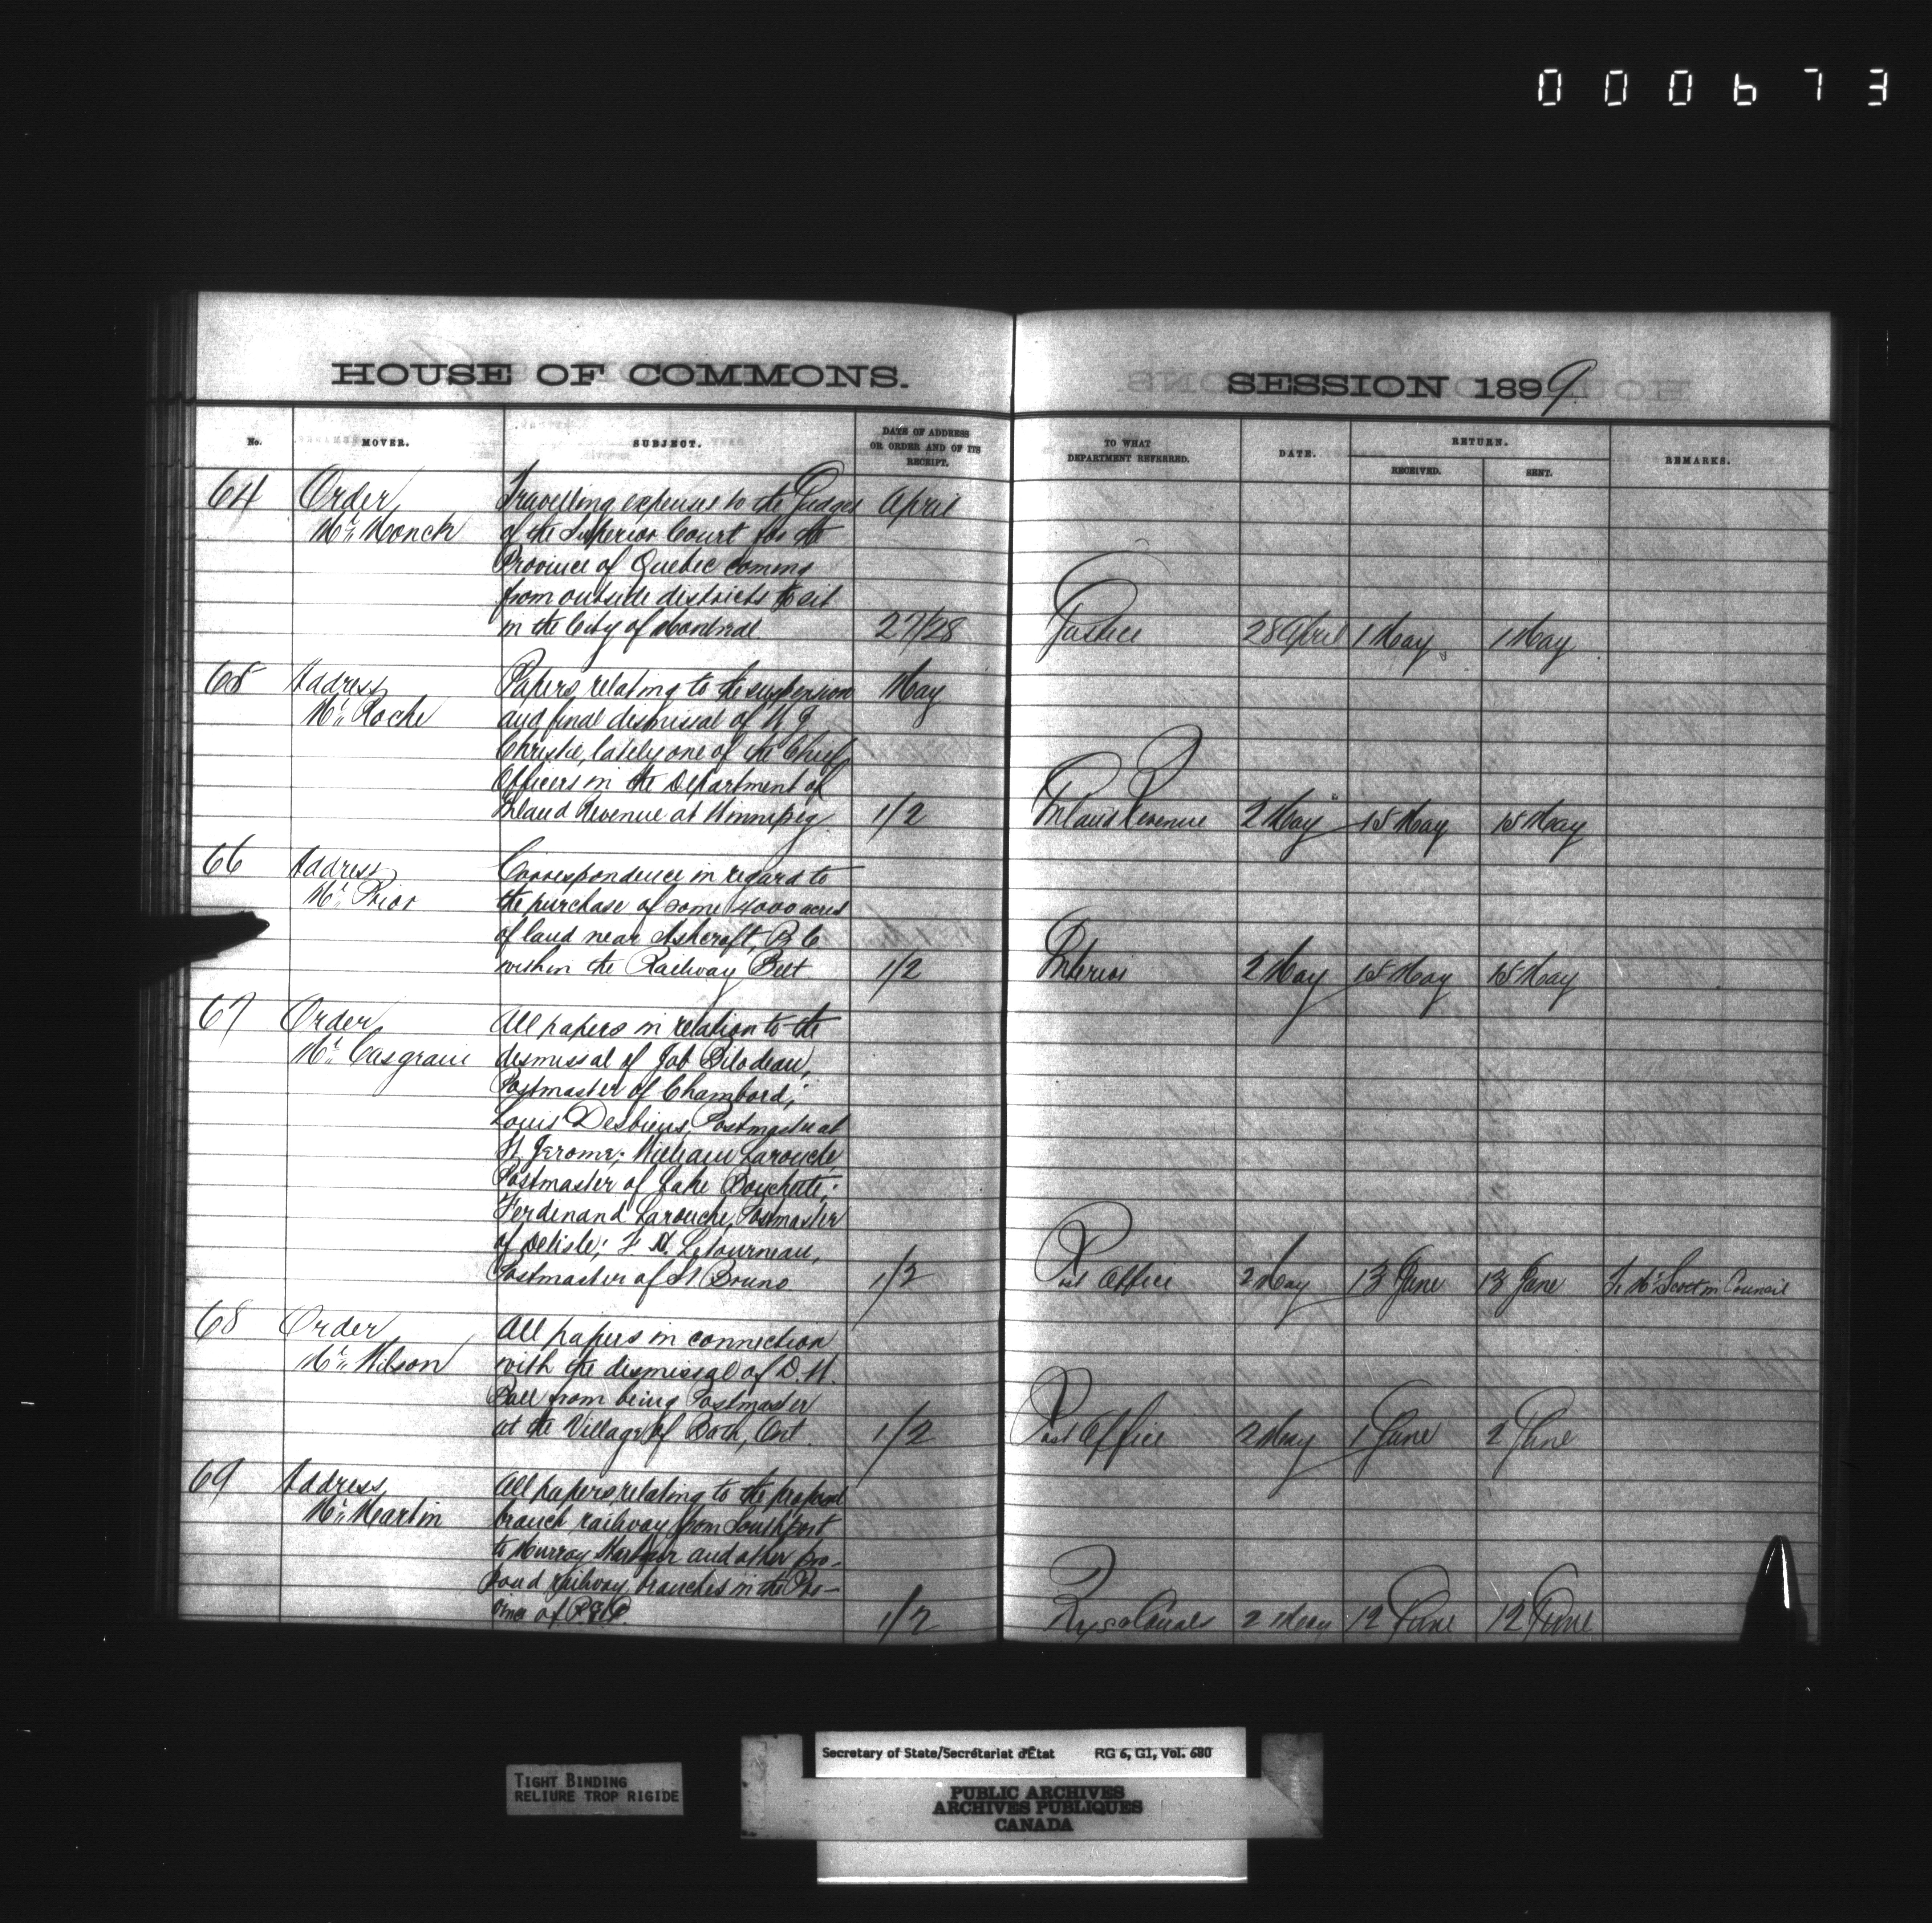 000673
HOUSE OF COMMONS.
SESSION 1899
No.
MOVER.
SUBJECT.
DATE OF ADDRESS
OR ORDER AND OF ITS
RECEIPT.
TO WHAT
DEPARTMENT REFERRED.
DATE.
RETURN.
RECEIVED.
SENT.
REMARKS.
64 Order Travelling expenses to the Judges April
Mr. Monck of the Superior Court for the
Province of Quebec coming
from outside districts to sit
in the City of Montreal 27/28 Justice 28 April 1 May 1 May
65 Address Papers relating to the suspension May
Mr. Roche and final dismissal of W J
Christie, lately one of the Chief
Officers in the Department of
Inland Revenue at Winnipeg 1/2 Inland Revenue 2 May 15 May 15 May
66 Address Correspondence in regard to
Mr. Prior the purchase of some 4000 acres
of land near Ashcroft, B C
within the Railway Belt 1/2 Interior 2 May 15 May 15 May
67 Order All papers in relation to the
Mr. Casgrain dismissal of Job Bilodeau,
Postmaster of Chambord;
Louis Desbiens, Postmaster at
St. Jerome; William Larouche
Postmaster of Lake Bouchette;
Ferdinand Larouche, Postmaster
of Delisle; Letourneau,
Postmaster of St Bruno 1/2 Post Office 2 May 13 June 13 June To Mr. Scott in Council
68 Order All papers in connection
Mr. Wilson with the dismissal of D. W.
Ball from being Postmaster
at the Village of Bath, Ont. 1/2 Post Office 2 May 1 June 2 June
69 Address All papers relating to the proposed
Mr. Martin branch railway from Southport
to Murray Harbour and other pro-
posed railway branches in the Pro-
vince of P.E.I. 1/2 Rys & Canals 2 May 12 June 12 June
TIGHT BINDING
RELIURE TROP RIGIDE
Secretary of State/Secrétariat d'État RG 6, G1, Vol. 680
PUBLIC ARCHIVES
ARCHIVES PUBLIQUES
CANADA